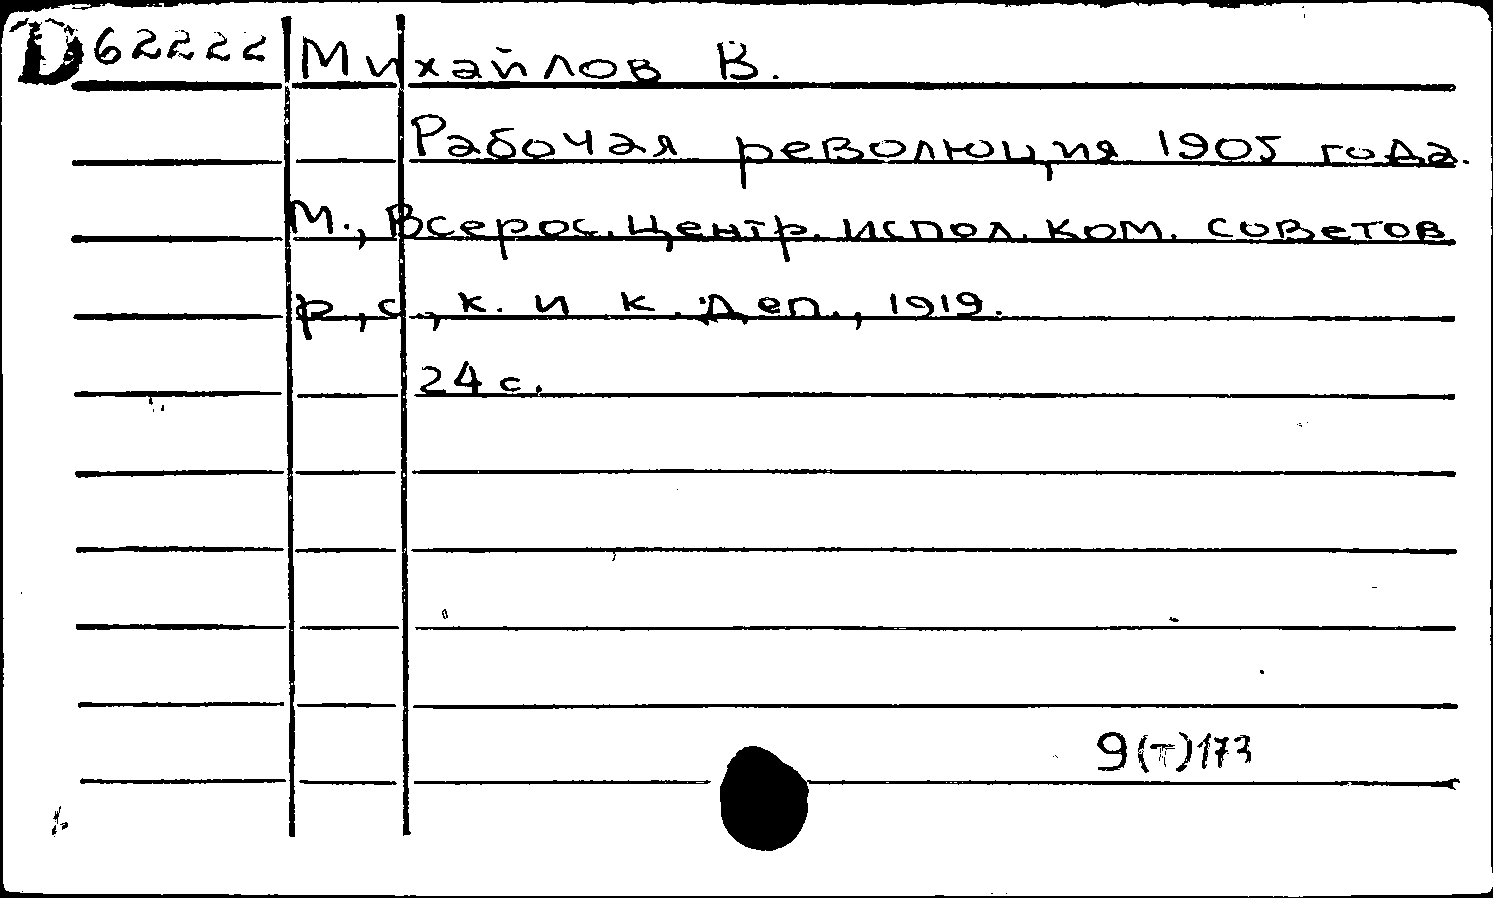 D 62222 Михайлов В.
Рабочая революция 1905 года.
М., Всерос. Центр. испол. ком. советов
р., с., к. и к. деп., 1919.
24 с.
9(Т)173